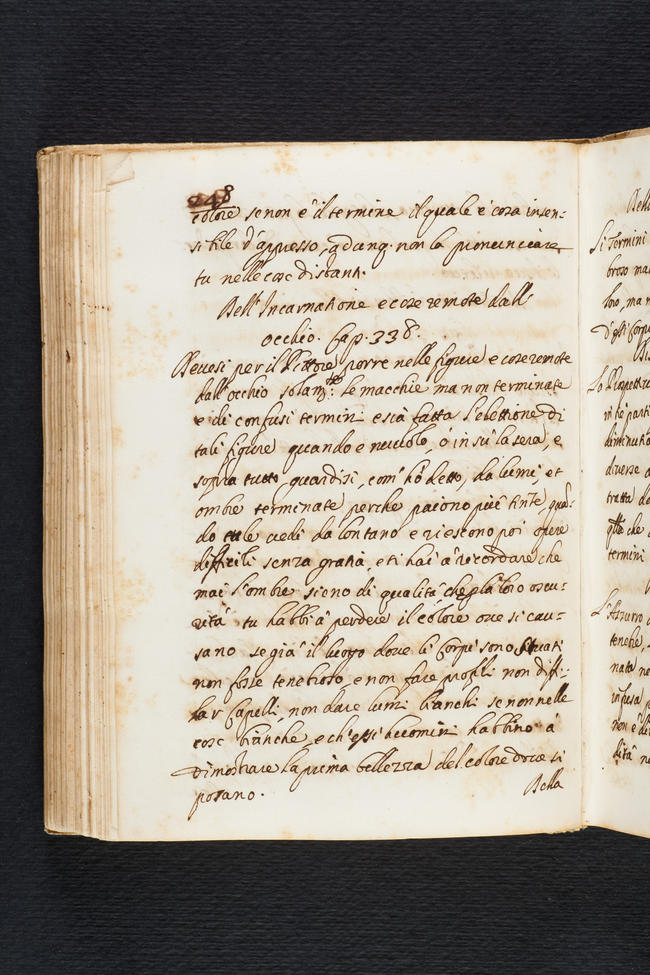 248
colore se non è il termine il quale è cosa insen-
sibile d'appresso, adunq. non la pronunciare
tu nelle cose distanti.
Dell'Incarnatione e cose remote dall'
occhio. Cap. 338.
Devesi per il Pittore porre nelle figure e cose remote
dall'occhio solam.te le macchie, ma non terminate
e di confusi termini e sia fatta l'elettione di
tali figure quando e nuvolo, ò in sù la sera, e
sopra tutto guardisi, com'hò detto, da lumi, et
ombre terminate perche paiono poi tinte, quan-
do tu le vedi da lontano e riescono poi opere
difficili senza gratia, e ti hai à ricordare che
mai l'ombre sieno di qualità che p la loro oscu-
rità tu habbi à perdere il colore ove si cau-
sano se già il luogo dove li Corpi sono situati
non fosse tenebroso, e non fare profili non disfi-
lar Capelli, non dare lumi bianchi se non nelle
cose bianche, e ch'essi lumi habbino à
dimostrare la prima bellezza del colore dove si
posano.
Della
Dell
Si Termini
broso ma
loro, ma n
D'gli Corpi
La Prospettiva
diminutio
diverse
tratta de
termini
L'Azzurro
tenebre,
nata ne
infusa
non è di